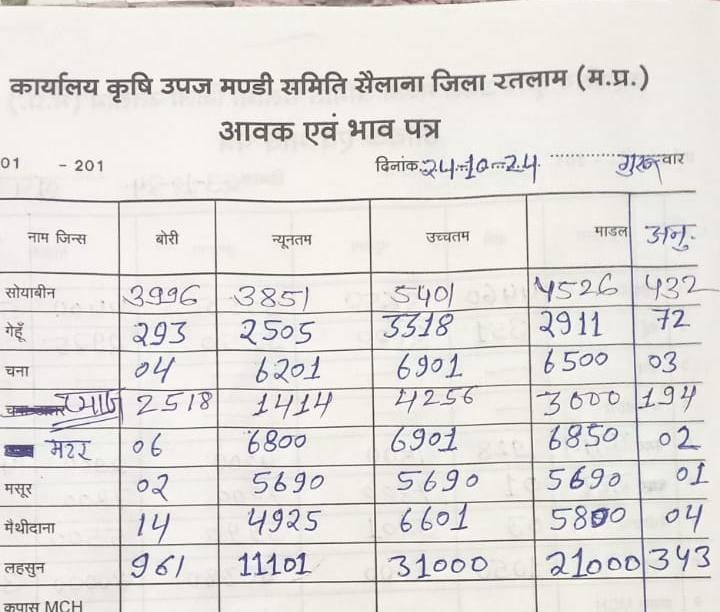 कार्यालय कृषि उपज मण्डी समिति सैलाना जिला रतलाम (म.प्र.)
आवक एवं भाव पत्र
01 - 201 दिनांक 24-10-24 गुरूवार
नाम जिन्स बोरी न्यूनतम उच्चतम माडल अनु.
सोयाबीन 3996 3851 5401 4526 432
गेहूँ 293 2505 3318 2911 72
चना 04 6201 6901 6500 03
2518 1414 4256 3000 194
मटर 06 6800 6901 6850 02
मसूर 02 5690 5690 5690 01
मैथीदाना 14 4925 6601 5800 04
लहसुन 961 11101 31000 21000 343
कपास MCH